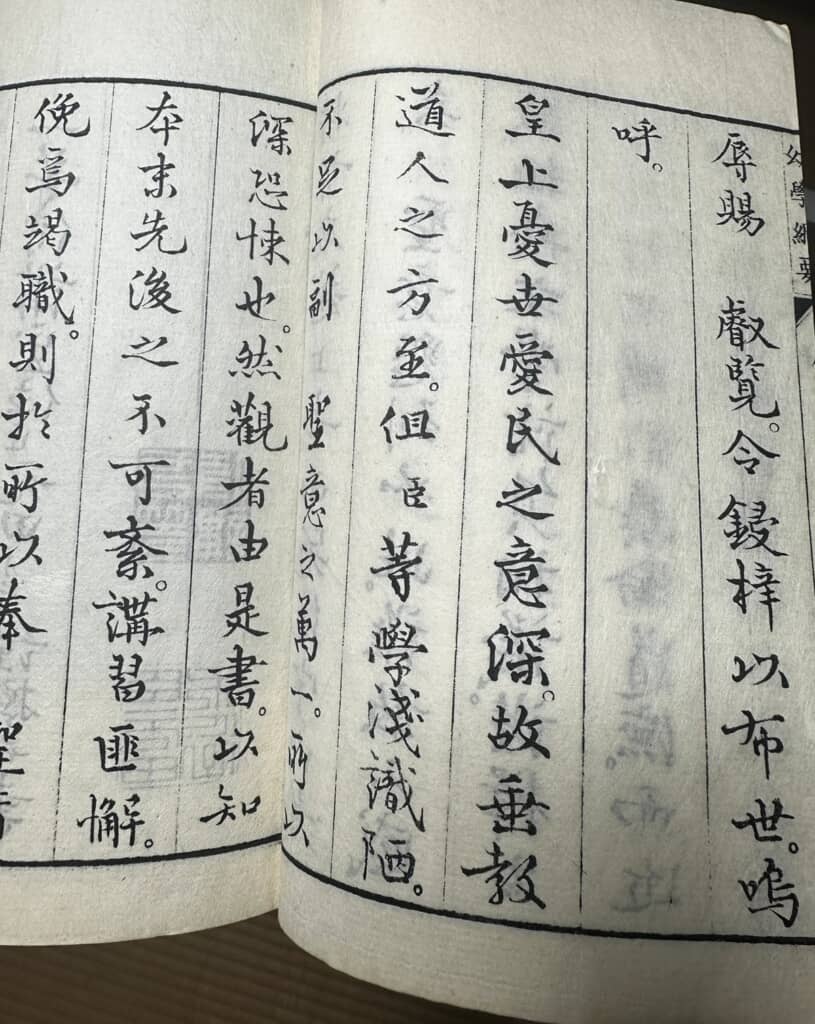 幼學綱要
辱賜　叡覽。令鋟梓以布世。嗚
呼。
皇上憂世愛民之意深。故垂教
道人之方至。但臣等學淺識陋。
不足以副　聖意之萬一。所以
深恐悚也。然觀者由是書。以知
本末先後之不可紊。講習匪懈。
俛焉竭職。則於所以奉